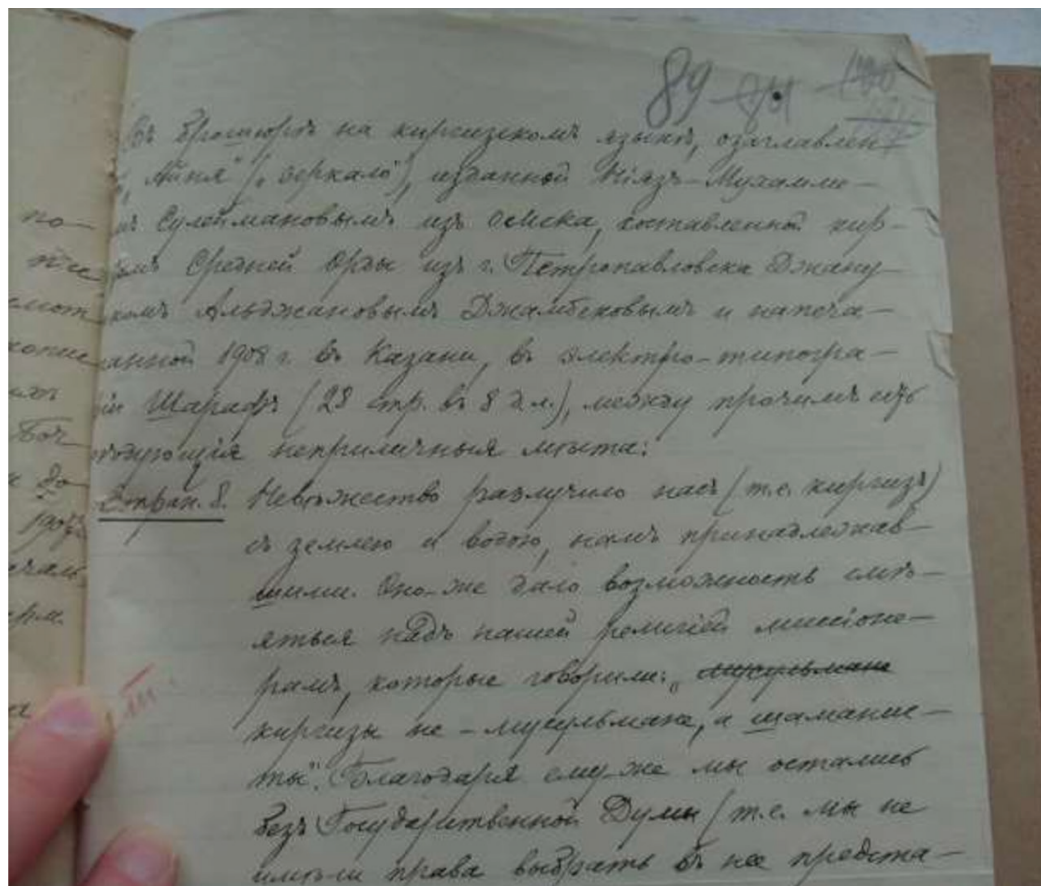 89 84
Въ брошюрѣ на киргизскомъ языкѣ, озаглавлен-
"Айня" ("зеркало"), изданной Ніязъ-Мухамме-
Сулеймановымъ изъ Омска, составленной кир-
Средней Орды изъ г. Петропавловска Джану-
Альджановымъ Джамбековымъ и напеча-
танной 1908 г. въ Казани, въ электро-типогра-
фіи Шарафъ (28 стр. въ 8 д.л.), между прочимъ есть
слѣдующія неприличныя мѣста:
Стран. 8. Невѣжество разлучило насъ (т.е. киргизъ)
съ землею и водою, намъ принадлежав-
шими. Оно-же дало возможность смѣ-
яться надъ нашей религіей миссіоне-
рамъ, которые говорили: "мусульмане
киргизы не-мусульмане, а шаманис-
ты". Благодаря ему-же мы остались
безъ Государственной Думы (т.е. мы не
имѣли права выбрать въ нее предста-
по-
1907 г.